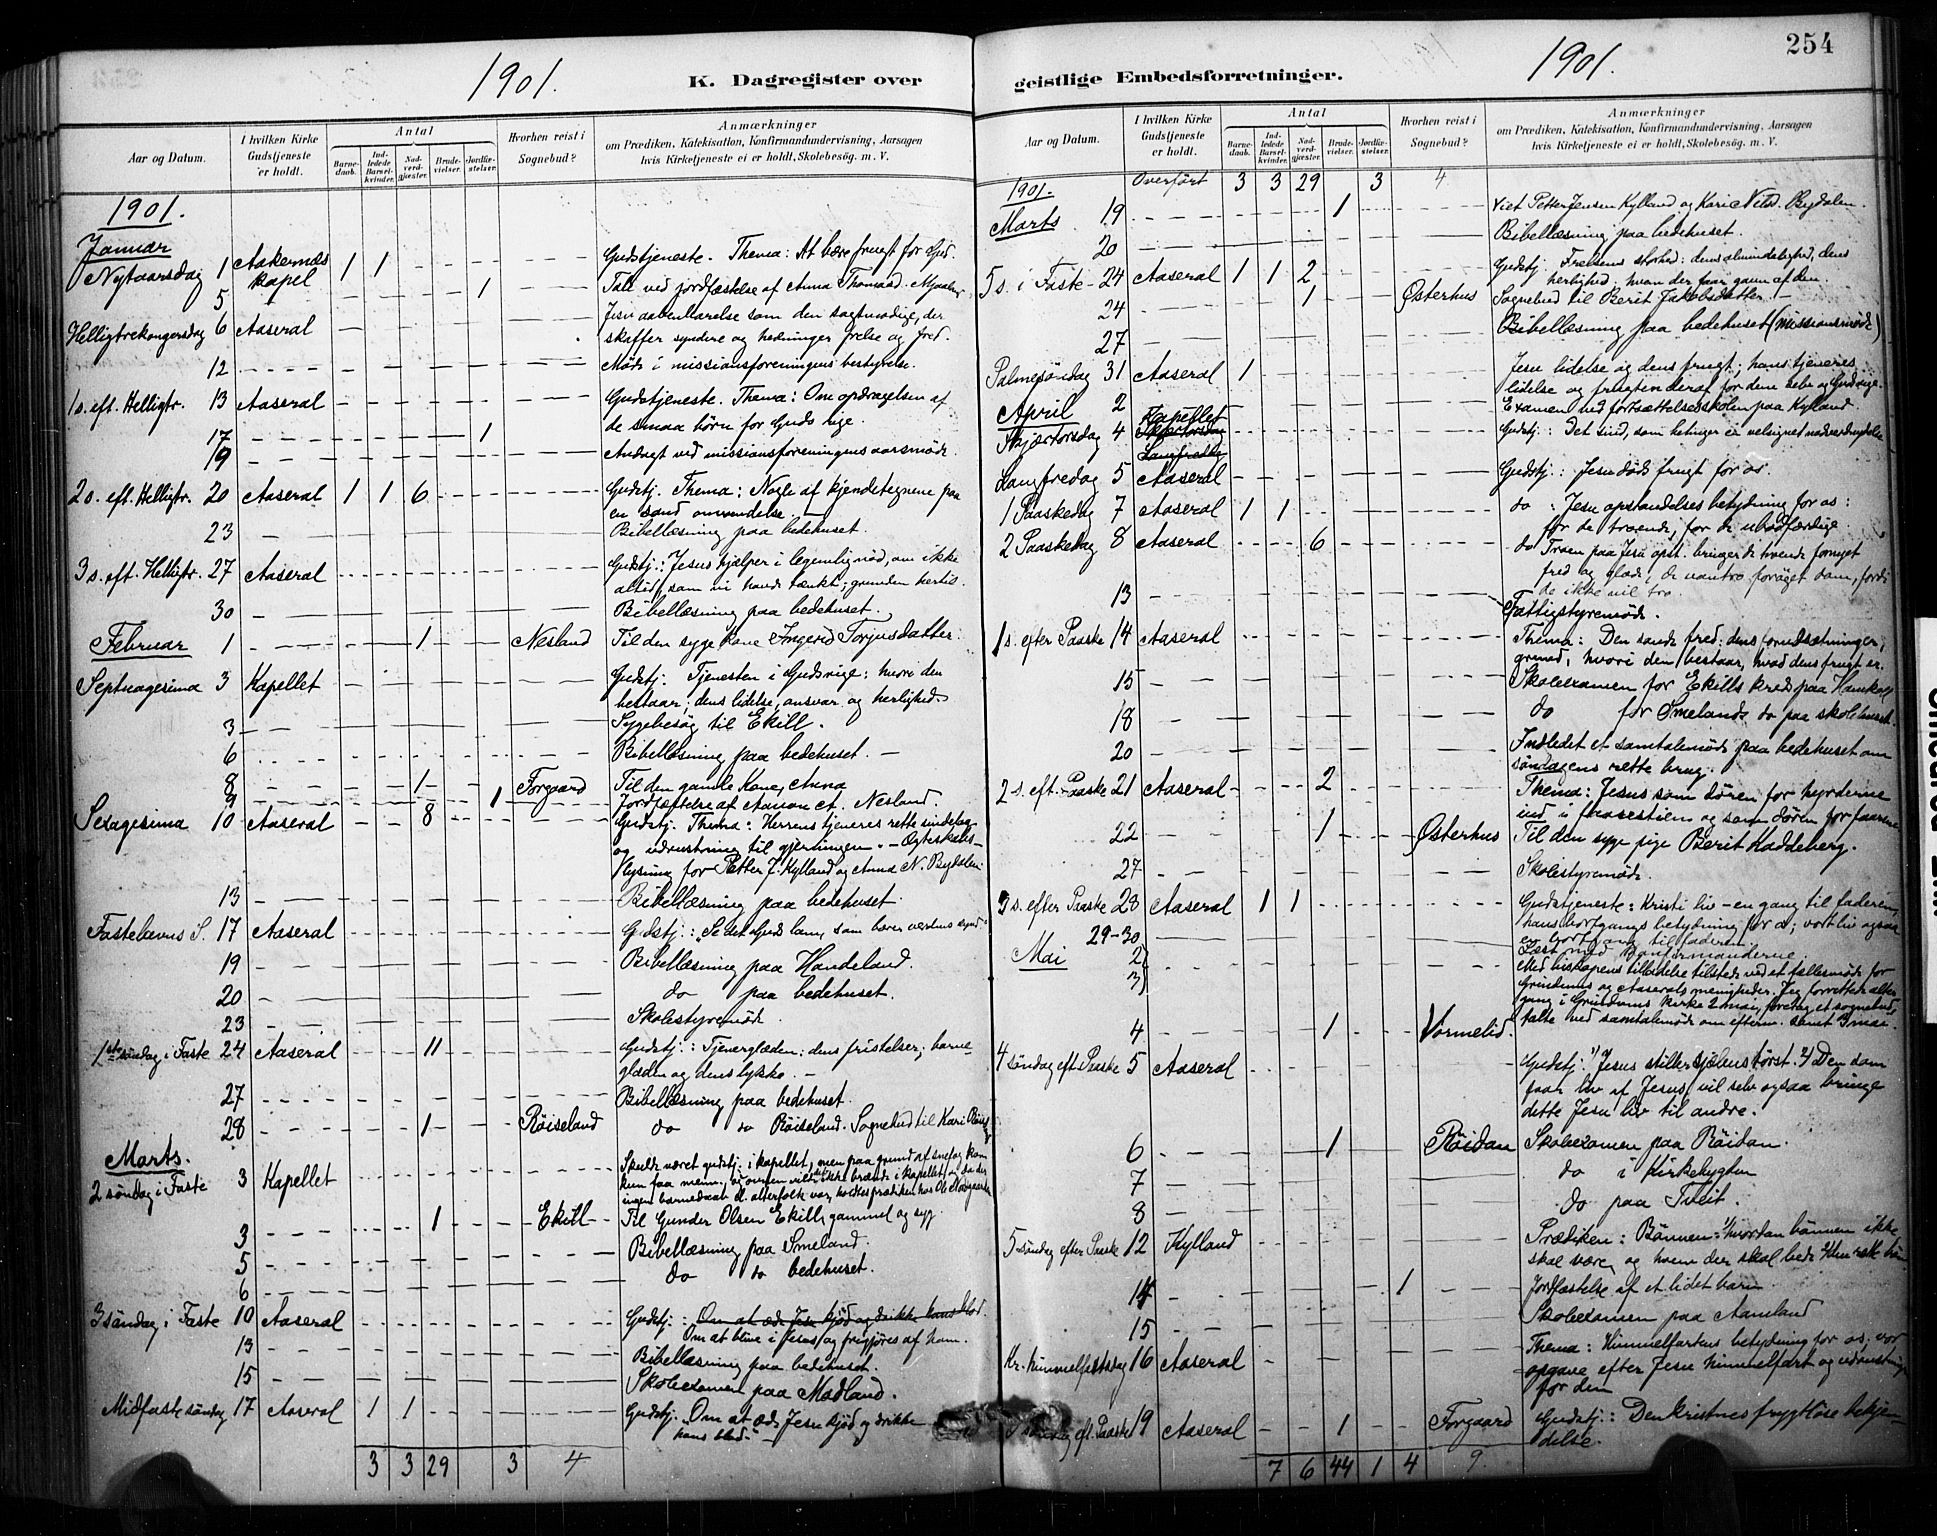 254
1901.
K. Dagregister over
geistlige Embedsforretninger.
1901.
Aar og Datum.
I hvilken Kirke Gudstjeneste er holdt.
Antal
Barnedaab.
Indledede Barselkvinder.
Nadverdgjæster.
Brudevielser.
Jordfæstelser.
Hvorhen reist i Sognebud?
Anmærkninger
om Prædiken, Katekisation, Konfirmandundervisning, Aarsagen
hvis Kirketjeneste ei er holdt, Skolebesøg. m. V.
1901.
Januar
Nytaarsdag 1 Aakernæs kapel 1 1 Gudstjeneste. Thema: At bære frugt for Gud.
5 1 Tale ved jordfæstelse af Anna
Helligtrekongersdag 6 Aaseral Jesu aabenbarelse som den sagtmodige, der
skaffer syndere og hedninger frelse og fred.
12 Møde i missionsforeningens bestyrelse.
1 s. eft. Helligtr. 13 Aaseral Gudstjeneste. Thema: Om opdragelsen af
de smaa børn for Guds rige.
17 1
19 Andagt ved missionsforeningens aarsmøde.
2 s. eft. Helligtr. 20 Aaseral 1 1 6 Gudstj. Thema: Nogle af kjendetegnene paa
en sand omvendelse.
23 Bibellæsning paa bedehuset
3 s. eft. Helligtr. 27 Aaseral Gudstj.: Jesus hjælper i legemlig nød, om ikke
altid, som vi havde tænkt; grunden hertil.
30 Bibellæsning paa bedehuset.
Februar 1 1 Nesland Til den syge kone Ingerid Torjusdatter.
Septuagesima 3 Kapellet Gudstj: Tjenesten i Gudsrige: hvori den
bestaar; dens lidelse, ansvar og herlighed
3 Sygebesøg til Ekill.
6 Bibellæsning paa bedehuset.
8 1 Forgaard Til den gamle Kone, Anna
9 1 Jordfæstelse af Aanon A. Nesland.
Sexagesima 10 Aaseral 8 Gudstj. Thema: Herrens tjeneres rette sindelag
og udrustning til gjerningen. - Ægteskabs-
lysning for Petter J. Kylland og Anna N. Bygdalen
13 Bibellæsning paa bedehuset.
Fastelavns S. 17 Aaseral Gudstj.: "Se det Guds lam, som bærer verdens synd."
19 Bibellæsning paa Handeland.
20 do paa bedehuset.
23 Skolestyremøde
1ste søndag i Faste 24 Aaseral 11 Gudstj.: Tjenerglæden: dens fristelser; barne-
glæden og dens lykke. -
27 Bibellæsning paa bedehuset.
28 1 Røiseland do do Røiseland. Sognebud til Kari
Marts.
2 søndag i Faste 3 Kapellet Skulde været gudstj. i kapellet, men paa grund af snefog kom
3 1 Ekill Til Gunder Olsen Ekill, gammel og syg.
5 Bibellæsning paa Smeland.
6 do do bedehuset.
3 søndag i Faste 10 Aaseral Gudstj.: Om at æde Jesu kjød og drikke hans blod.
Om at blive i Jesus og frigjøres af ham.
13 Bibellæsning paa bedehuset.
15 Skoleexamen paa Madland.
Midfaste søndag 17 Aaseral 1 1 Gudstj: "Om at æde Jesu kjød og drikke
hans blod." -
3 3 29 3 4
Aar og Datum.
I hvilken Kirke Gudstjeneste er holdt.
Antal
Barnedaab.
Indledede Barselkvinder.
Nadverdgjæster.
Brudevielser.
Jordfæstelser.
Hvorhen reist i Sognebud?
Anmærkninger
om Prædiken, Katekisation, Konfirmandundervisning, Aarsagen
hvis Kirketjeneste ei er holdt, Skolebesøg. m. V.
1901. Overført 3 3 29 3 4
Marts 19 1 Viet Petter Jensen Kylland og Kari Nilsd. Bygdalen.
20 Bibellæsning paa bedehuset.
5 s. i Faste 24 Aaseral 1 1 2 Gudstj Frelsens storhed: dens almindelighed, dens
herlighed, hvordan der faar gavn af den.
24 1 Østerhus Sognebud til Berit Jakobsdatter
27 Bibellæsning paa bedehuset (Missionsmøde)
Palmesøndag 31 Aaseral 1 Jesu lidelse og dens frugt; hans tjeneres
lidelse og frugten deraf for dem selv og Gudsrige.
April 2 Examen ved fortsættelsesskolen paa Kylland.
Skjærtorsdag 4 Kapellet Gudstj.: Det sind, som betinger en velsignet nadverdnydelse
Langfredag 5 Aaseral Gudstj.: Jesu døds frugt for os.
1 Paaskedag 7 Aaseral 1 1 do : Jesu opstandelses betydning for os:
for de troende, for de ubodfærdige.
2 Paaskedag 8 Aaseral 6 do Troen paa Jesu opst. bringer de troende fornyet
fred og glæde, de vantro forøget dom, fordi
de ikke vil tro.
13 Fattigstyremøde.
1 s. efter Paaske 14 Aaseral Thema: Den sande fred: dens forudsætninger,
grund, hvori den bestaar, hvad dens frugt er.
15 Skoleexamen for Ekills kreds paa
18 do for Smelands do paa skolehuset.
20 Indledet et samtalemøde paa bedehuset om
søndagens rette brug.
2 s. eft. Paaske 21 Aaseral 2 Thema: Jesus som døren for hyrderne
ind i faarestien og som døren for faarene
22 1 Østerhus Til den syge pige Berit Haddeberg.
27 Skolestyremøde.
3 s. efter Paaske 28 Aaseral 1 1 Gudstjeneste: Kristi liv - en gang til faderen,
hans bortgangs betydning for os; vort liv ogsaa
en bortgang til faderen.
29-30
Mai 2 Med biskopens tilladelse tilstede ved et fællesmøde for
3 Grindums og Aaserals menigheder. Jeg forrettede alter
gang i Grindums kirke 2 mai, foretog et sognebud,
4 1 Vormelid. talte ved samtalemøde om efterm. samt 3 mai.
4 søndag eft. Paaske 5 Aaseral Gudstj: 1) Jesus stiller sjælens tørst. 2) Den som
faar liv af Jesus, vil selv ogsaa bringe
dette Jesu liv til andre.
6 1 Røidan Skoleexamen paa Røidan.
7 do i Kirkebygden
8 do paa Tveit.
5 søndag efter Paaske 12 Kylland Prædiken: Bønnen: hvordan bønnen ikke
skal være, og hvem der skal bede
14 1 Jordfæstelse af et lidet barn.
15 Skoleexamen paa Aamland
Kr. himmelfartsdag 16 Aaseral Thema: Himmelfartens betydning for os; vor
opgave efter Jesu himmelfart og udrustning
for den
eft. Paaske 19 Aaseral 1 Forgaard Gudstj.: Den kristnes frygtløse bekjen-
delse.
7 6 44 1 4 9.